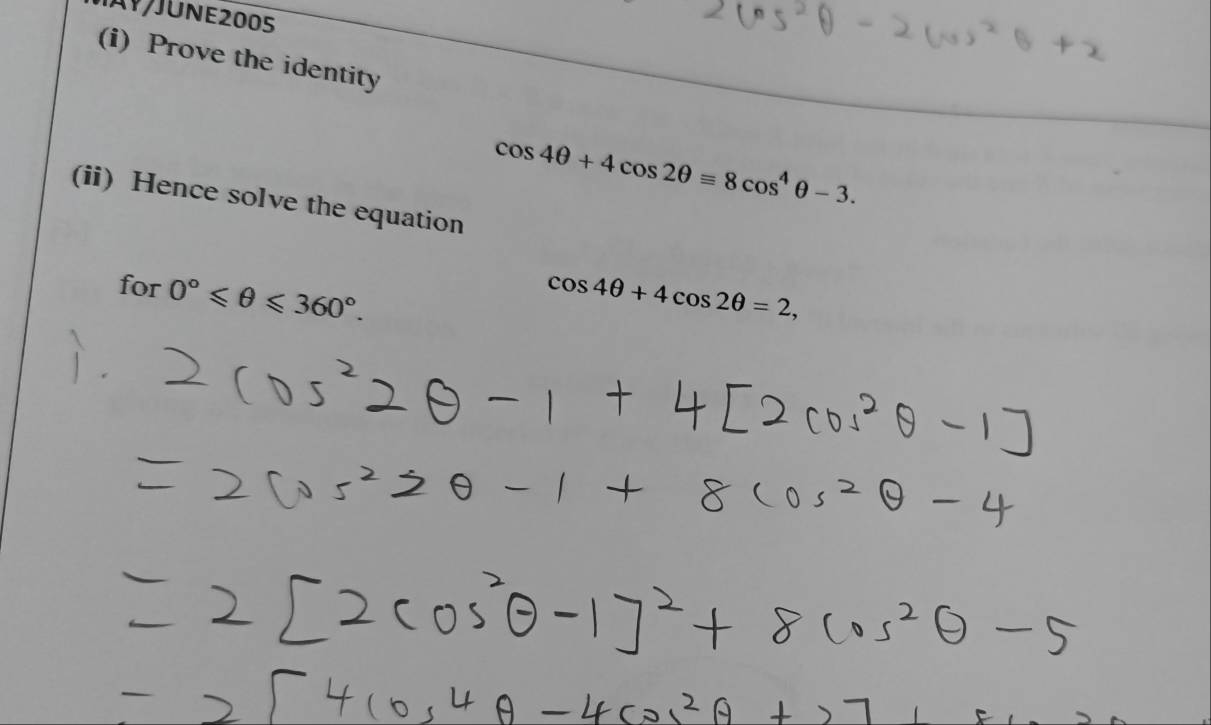 2 cos² θ - 2 cos² θ + 2
MAY/JUNE2005
(i) Prove the identity
cos 4θ + 4 cos 2θ ≡ 8 cos⁴ θ − 3.
(ii) Hence solve the equation
cos 4θ + 4 cos 2θ = 2,
for 0° ⩽ θ ⩽ 360°.
i. 2 cos² 2θ - 1 + 4[2 cos² θ - 1]
= 2 cos² 2θ - 1 + 8 cos² θ - 4
= 2[2 cos² θ - 1]² + 8 cos² θ - 5
= 2[4 cos⁴ θ - 4 cos² θ +